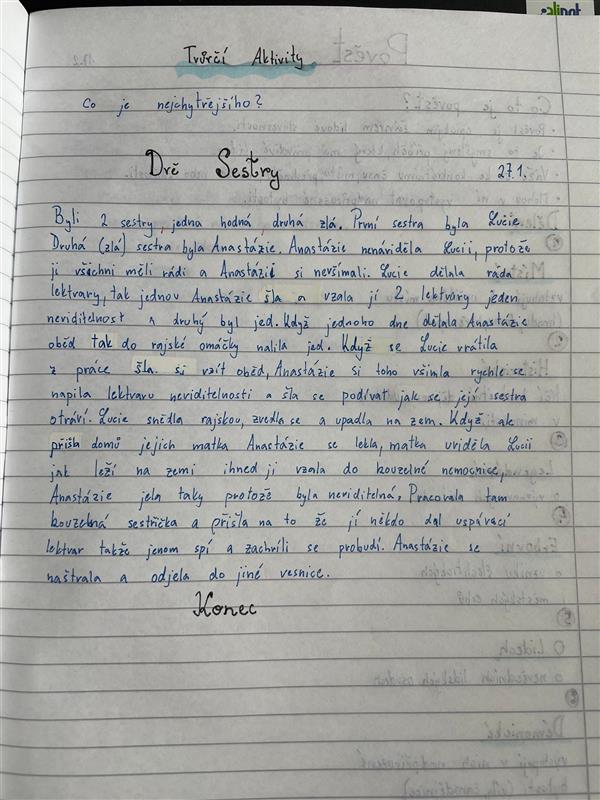 Tvůrčí Aktivity
Co je nejchytřejšího?
Dvě Sestry 27.1.
Byli 2 sestry, jedna hodná druhá zlá. První sestra byla Lucie
Druhá (zlá) sestra byla Anastázie. Anastázie nenáviděla Lucii, protože
ji všichni měli rádi a Anastázií si nevšímali. Lucie dělala ráda
lektvary, tak jednou Anastázie šla a vzala jí 2 lektvary jeden
neviditelnost a druhý byl jed. Když jednoho dne dělala Anastázie
oběd tak do rajské omáčky nalila jed. Když se Lucie vrátila
z práce šla si vzít oběd, Anastázie si toho všimla rychle se
napila lektvaru neviditelnosti a šla se podívat jak se její sestra
otráví. Lucie snědla rajskou, zvedla se a upadla na zem. Když ale
přišla domů jejich matka Anastázie se lekla, matka uviděla Lucii
jak leží na zemi ihned ji vzala do kouzelné nemocnice,
Anastázie jela taky protože byla neviditelná. Pracovala tam
kouzelná sestřička a přišla na to že jí někdo dal uspávací
lektvar takže jenom spí a zachvíli se probudí. Anastázie se
naštvala a odjela do jiné vesnice.
Konec